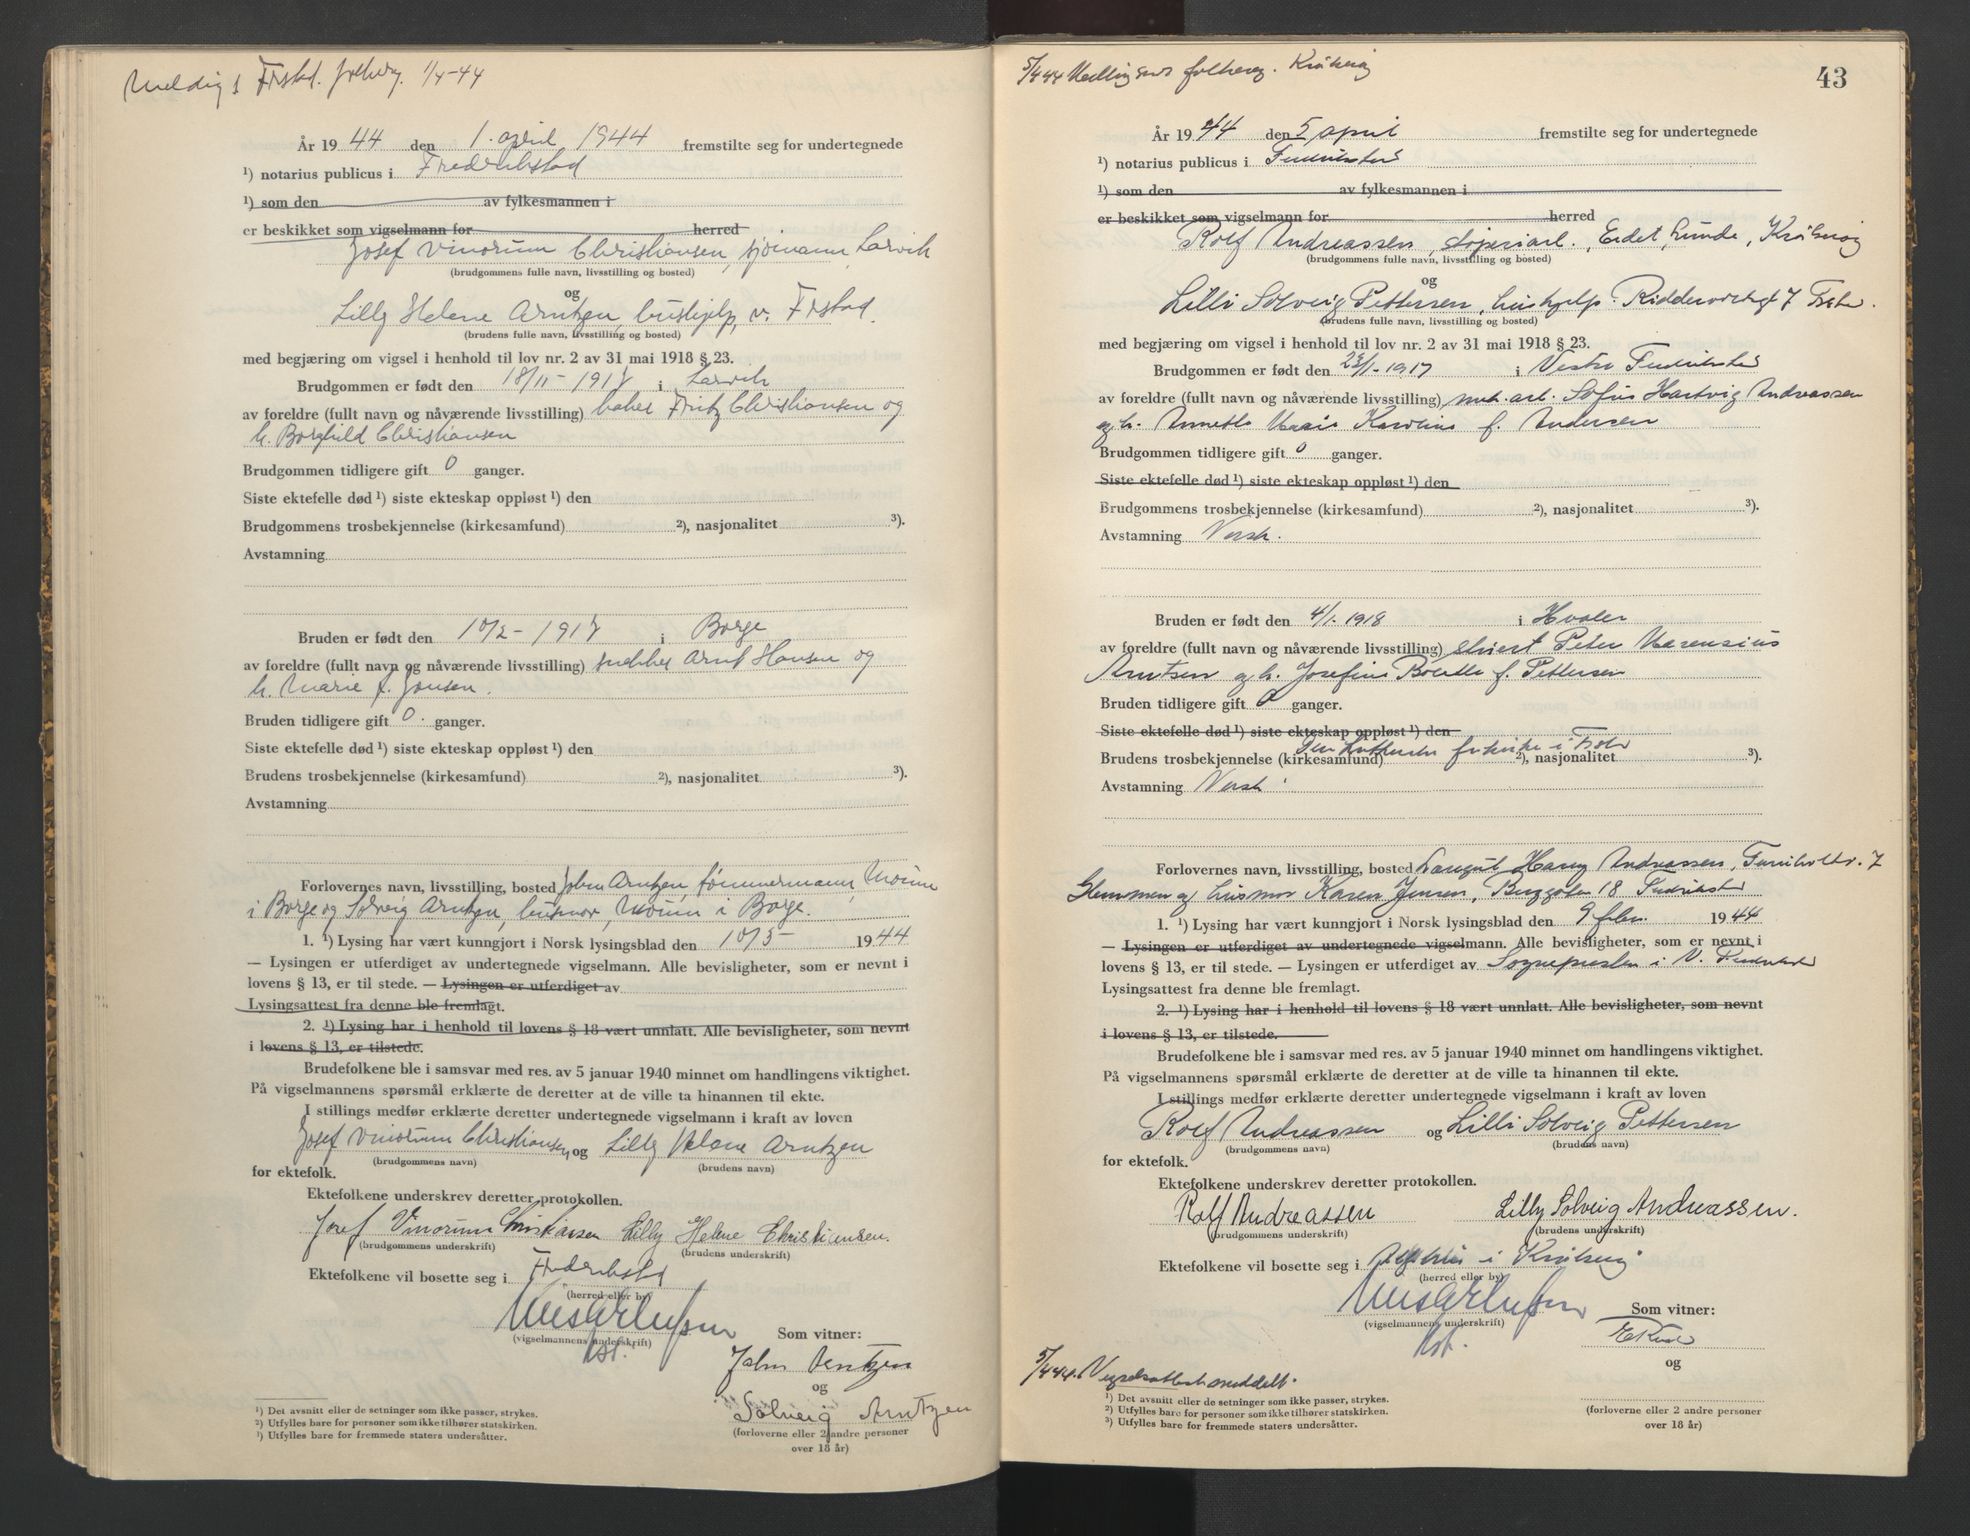 Melding s Frstad. folkreg. 1/4-44
År 1944 den 1. april 1944 fremstilte seg for undertegnede
¹) notarius publicus i Fredrikstad
¹) som den av fylkesmannen i
er beskikket som vigselmann for herred
Josef Vinorum Christiansen, sjømann, Larvik
(brudgommens fulle navn, livsstilling og bosted)
og
Lilly Helene Arntzen, hushjelp, v. Frstad.
(brudens fulle navn, livsstilling og bosted)
med begjæring om vigsel i henhold til lov nr. 2 av 31 mai 1918 § 23.
Brudgommen er født den 18/11-1917 i Larvik
av foreldre (fullt navn og nåværende livsstilling) baker Fritz Christiansen og
h. Borghild Christiansen
Brudgommen tidligere gift 0 ganger.
Siste ektefelle død ¹) siste ekteskap oppløst ¹) den
Brudgommens trosbekjennelse (kirkesamfund) ²), nasjonalitet ³).
Avstamning
Bruden er født den 10/2-1917 i Borge
av foreldre (fullt navn og nåværende livsstilling) snekker Arnt Hansen og
h. Marie f. Jonsen.
Bruden tidligere gift 0. ganger.
Siste ektefelle død ¹) siste ekteskap oppløst ¹) den
Brudens trosbekjennelse (kirkesamfund) ²), nasjonalitet ³).
Avstamning
Forlovernes navn, livsstilling, bosted John Arntzen, tømmermann, Moum
i Borge og Solveig Arntzen, husmor, Moum i Borge.
1. ¹) Lysing har vært kunngjort i Norsk lysingsblad den 10/3- 1944
— Lysingen er utferdiget av undertegnede vigselmann. Alle bevisligheter, som er nevnt i
lovens § 13, er til stede. — Lysingen er utferdiget av
Lysingsattest fra denne ble fremlagt.
2. ¹) Lysing har i henhold til lovens § 18 vært unnlatt. Alle bevisligheter, som nevnt
i lovens § 13, er tilstede.
Brudefolkene ble i samsvar med res. av 5 januar 1940 minnet om handlingens viktighet.
På vigselmannens spørsmål erklærte de deretter at de ville ta hinannen til ekte.
I stillings medfør erklærte deretter undertegnede vigselmann i kraft av loven
Josef Vinorum Christiansen og Lilly Helene Arntzen
(brudgommens navn) (brudens navn)
for ektefolk.
Ektefolkene underskrev deretter protokollen.
Josef Vinorum Christiansen Lilly Helene Christiansen.
(brudgommens underskrift) (brudens underskrift)
Ektefolkene vil bosette seg i Fredrikstad
(herred eller by)
(vigselmannens underskrift) Som vitner:
John Arntzen
og
Solveig Arntzen
(forloverne eller 2 andre personer
over 18 år)
¹) Det avsnitt eller de setninger som ikke passer, strykes.
²) Utfylles bare for personer som ikke tilhører statskirken.
³) Utfylles bare for fremmede staters undersåtter.
5/4 44 Melding folkereg. Kråkerøy
43
År 1944 den 5 april fremstilte seg for undertegnede
¹) notarius publicus i Fredrikstad
¹) som den av fylkesmannen i
er beskikket som vigselmann for herred
Rolf Andreassen, sliperiarb., Lunde, Kråkerøy
(brudgommens fulle navn, livsstilling og bosted)
og
Lilli Solveig Pettersen, hushjelp. 7
(brudens fulle navn, livsstilling og bosted)
med begjæring om vigsel i henhold til lov nr. 2 av 31 mai 1918 § 23.
Brudgommen er født den 1917 i Vestre Fredrikstad
av foreldre (fullt navn og nåværende livsstilling) arb. Sofus Hartvig Andreassen
og h. Karoline f. Andersen
Brudgommen tidligere gift 0 ganger.
Siste ektefelle død ¹) siste ekteskap oppløst ¹) den
Brudgommens trosbekjennelse (kirkesamfund) ²), nasjonalitet ³).
Avstamning Norsk.
Bruden er født den 4/1-1918 i Hvaler
av foreldre (fullt navn og nåværende livsstilling) Peter Marensius
Arntsen og h. Josefine f. Pettersen
Bruden tidligere gift 0 ganger.
Siste ektefelle død ¹) siste ekteskap oppløst ¹) den
Den Lutherske frikirke i Frstd
Brudens trosbekjennelse (kirkesamfund) ²), nasjonalitet ³).
Avstamning Norsk.
Forlovernes navn, livsstilling, bosted Harry Andreassen, 7
Glemmen og husmor Karen Jensen, 18 Fredrikstad
1. ¹) Lysing har vært kunngjort i Norsk lysingsblad den 9 febr. 1944
— Lysingen er utferdiget av undertegnede vigselmann. Alle bevisligheter, som er nevnt i
lovens § 13, er til stede. — Lysingen er utferdiget av Sognepresten i V. Fredrikstad
Lysingsattest fra denne ble fremlagt.
2. ¹) Lysing har i henhold til lovens § 18 vært unnlatt. Alle bevisligheter, som nevnt
i lovens § 13, er til stede.
Brudefolkene ble i samsvar med res. av 5 januar 1940 minnet om handlingens viktighet.
På vigselmannens spørsmål erklærte de deretter at de ville ta hinannen til ekte.
I stillings medfør erklærte deretter undertegnede vigselmann i kraft av loven
Rolf Andreassen og Lilli Solveig Pettersen
(brudgommens navn) (brudens navn)
for ektefolk.
Ektefolkene underskrev deretter protokollen.
Rolf Andreassen Lilly Solveig Andreassen.
(brudgommens underskrift) (brudens underskrift)
Ektefolkene vil bosette seg i i Kråkerøy
(herred eller by)
Som vitner:
(vigselmannens underskrift)
og
5/4 44. Vigselsattest meddelt.
¹) Det avsnitt eller de setninger som ikke passer, strykes.
²) Utfylles bare for personer som ikke tilhører statskirken.
³) Utfylles bare for fremmede staters undersåtter.
(forloverne eller 2 andre personer
over 18 år)